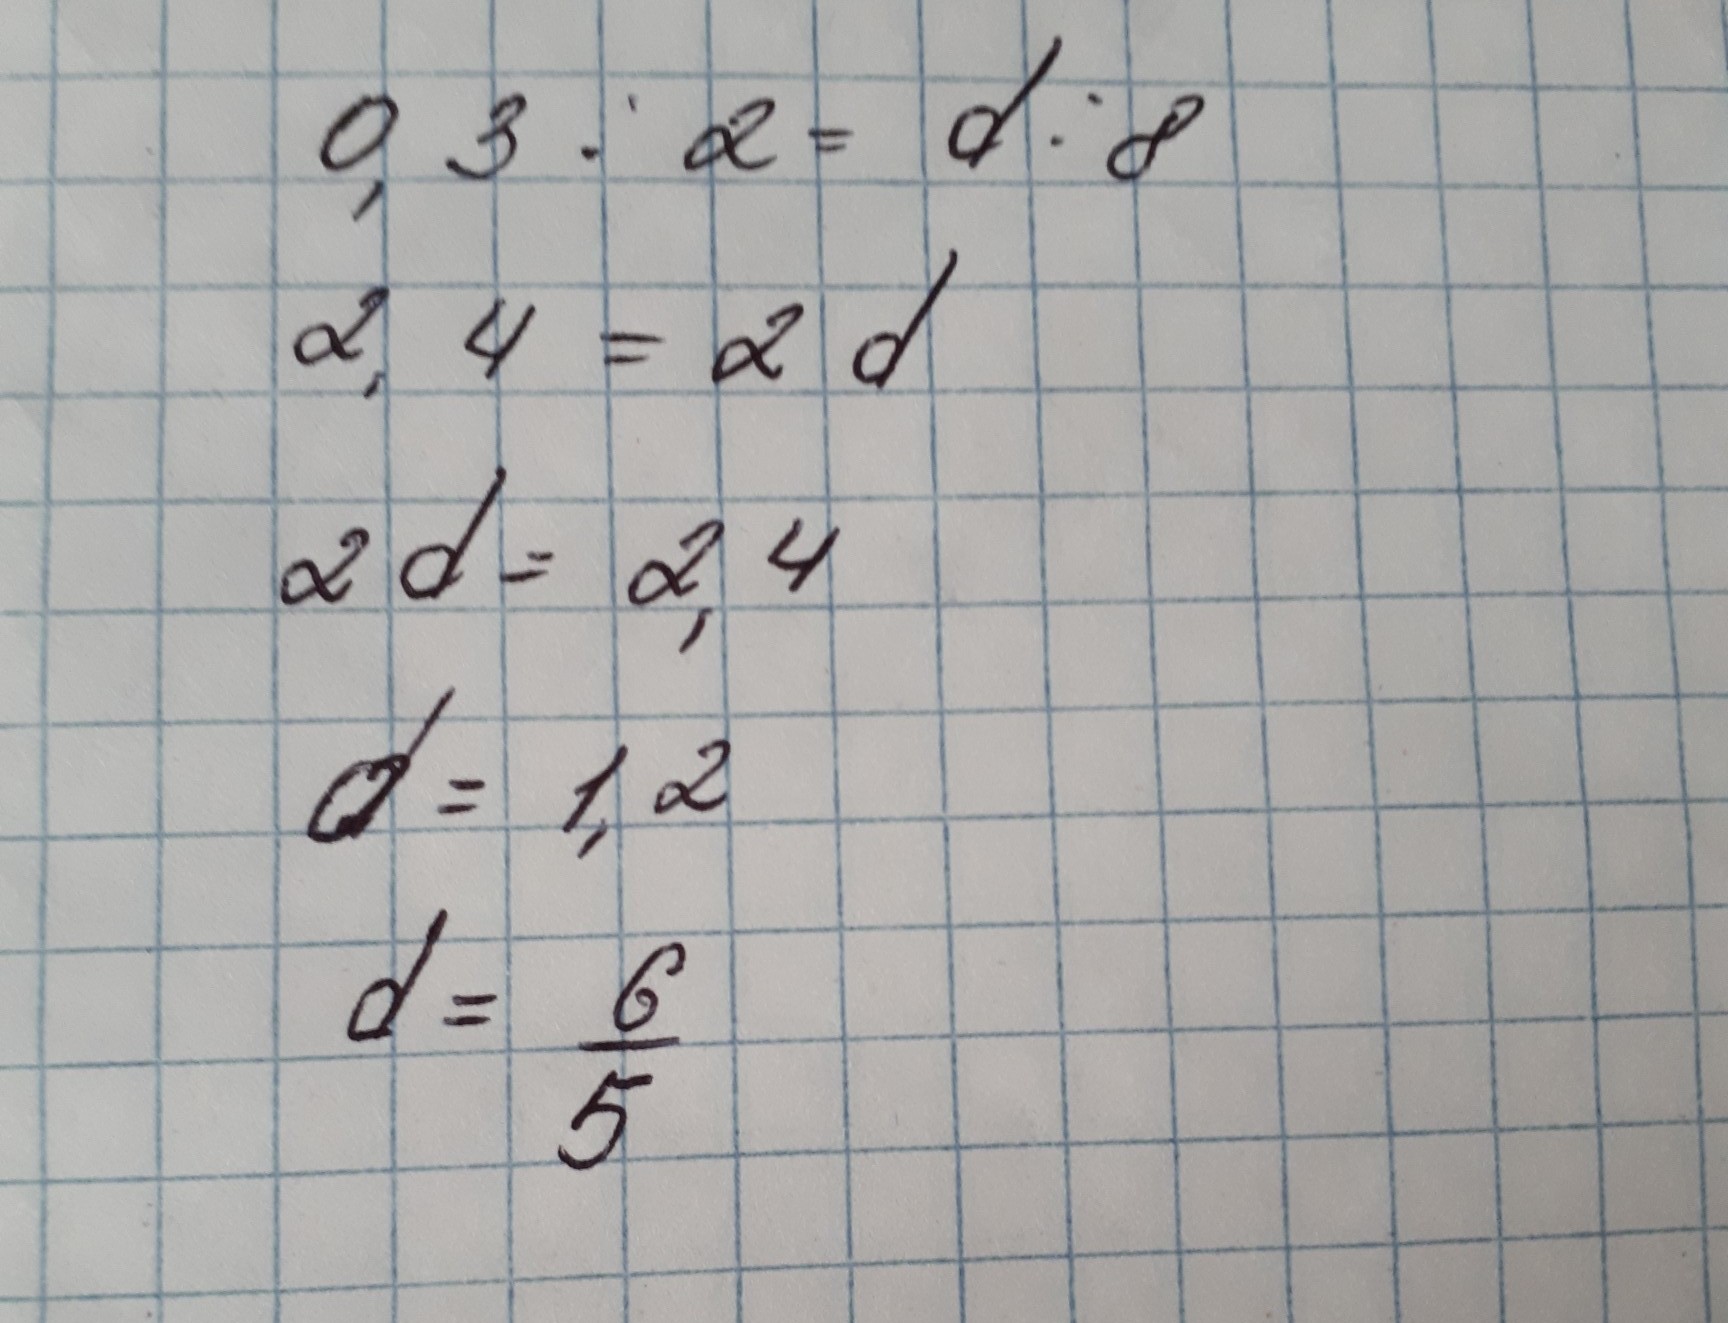 0,3 : 2 = d : 8
2,4 = 2d
2d = 2,4
d = 1,2
d = 6/5